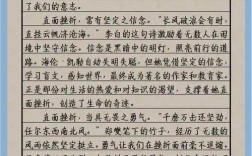 了我们的意志。
直面挫折，需有坚定之信念。“长风破浪会有时，
直挂云帆济沧海。”李白的这句诗激励着无数人在困
境中坚守信念。信念是黑暗中的明灯，照亮前行的道
路。海伦·凯勒自幼失明失聪，但她凭借坚定的信念，
学习盲文，感知世界，最终成为著名的作家和教育家。
正是那份对生活的热爱和对知识的渴望，支撑着她直
面挫折，创造了生命的奇迹。
直面挫折，当具无畏之勇气。“千磨万击还坚劲，
任尔东西南北风。”郑燮笔下的竹子，经历了无数的
风雨依然坚定挺立。勇气让我们在挫折面前毫不退缩，